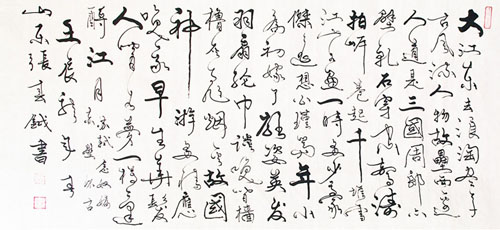 大江东去浪淘尽千
古風流人物故壘西邊
人道是三國周郎赤
壁乱石穿空驚濤
拍岸卷起千堆雪
江山如画一時多少豪
傑遥想公瑾當年小
喬初嫁了雄姿英发
羽扇綸巾談笑間檣
櫓灰飛烟滅故國
神游多情應
笑我早生華髮
人間如夢一樽還
酹江月
苏軾念奴娇
赤壁怀古
壬辰龍年春
山东張書